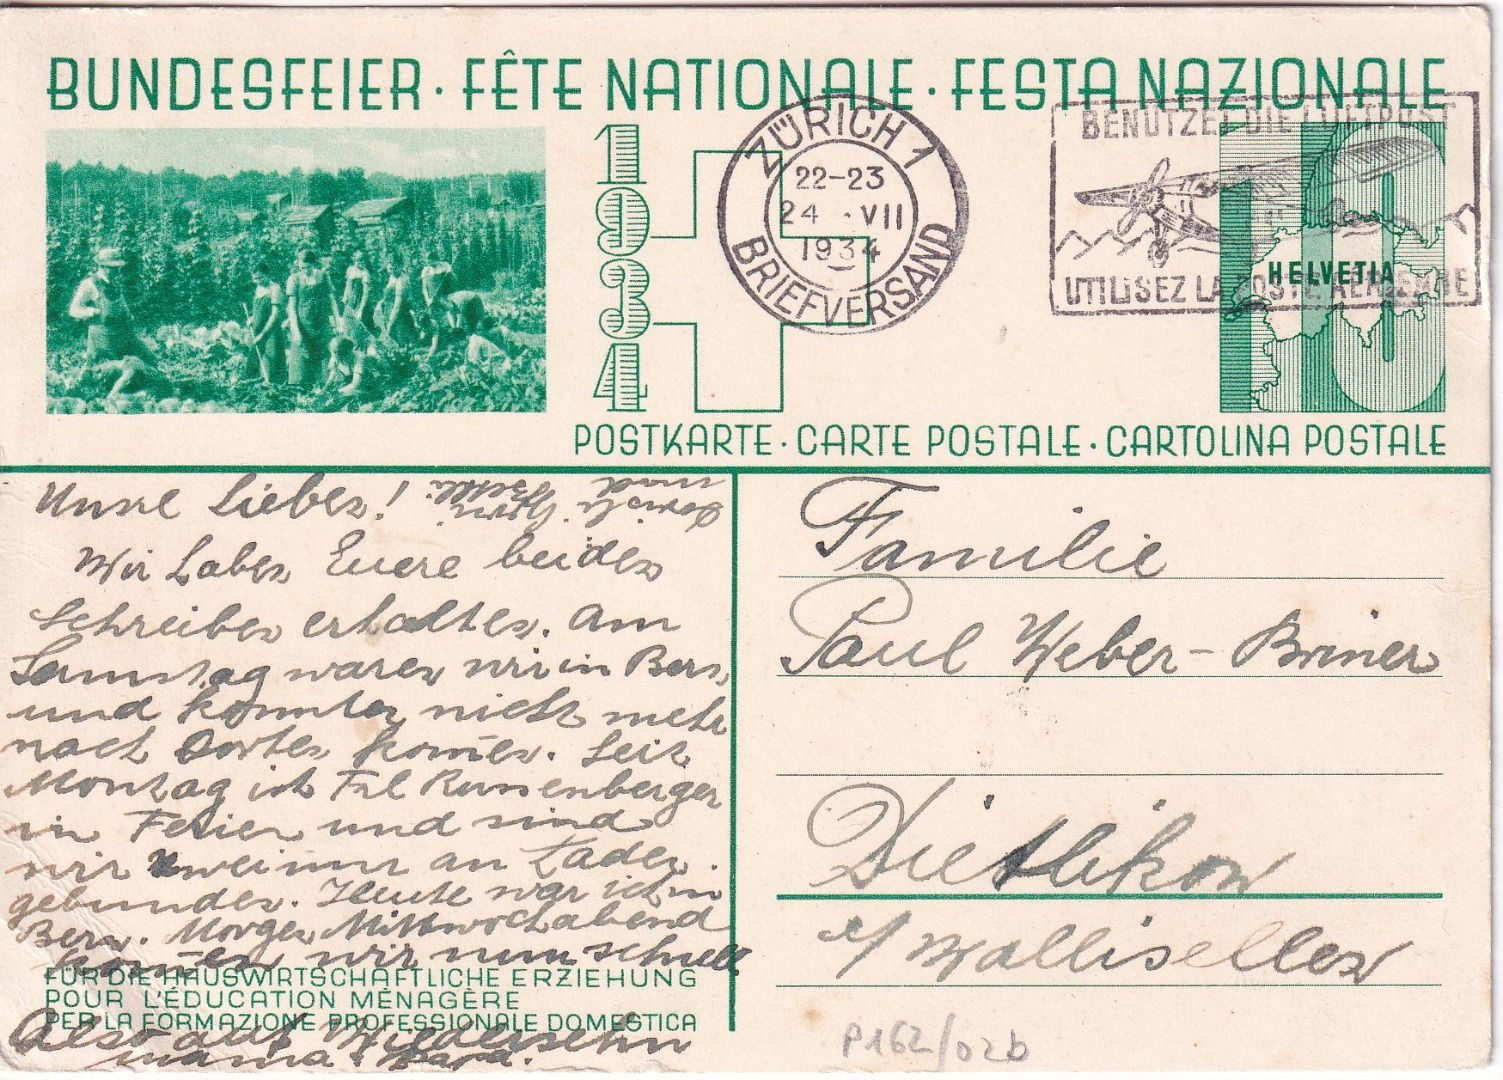 BUNDESFEIER · FÊTE NATIONALE · FESTA NAZIONALE
1934
ZÜRICH 1
22-23
24 · VII
1934
BRIEFVERSAND
BENUTZET DIE LUFTPOST
UTILISEZ LA POSTE AÉRIENNE
10
HELVETIA
POSTKARTE · CARTE POSTALE · CARTOLINA POSTALE
Unsre Lieben!
Wir haben Euere beiden
Schreiben erhalten. Am
Samstag waren wir in Bern
und konnten nicht mehr
nach dorten kom̄en. Seit
Montag ist Frl Runenberger
in Ferien und sind
wir zwei nun an Laden
gebunden. Heute war ich in
Bern. Morgen Mittwochabend
kom̄en wir nun schnell
FÜR DIE HAUSWIRTSCHAFTLICHE ERZIEHUNG
POUR L'ÉDUCATION MÉNAGÈRE
PER LA FORMAZIONE PROFESSIONALE DOMESTICA
Also auf Wiedersehn
Mama + Papa.
Familie
Paul Weber-Briner
Dietlikon
b/ Wallisellen
P162/02b